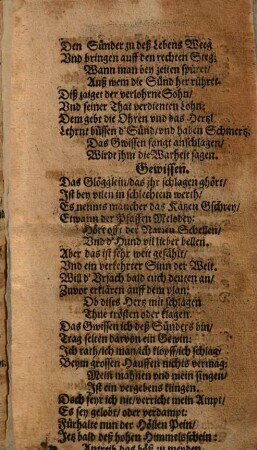 Den Sünder zu deß Lebens Weeg
Vnd bringen auff den rechten Steg;
Wann man bey zeiten spüret/
Auß wem die Sünd herrühret.
Diß zaiget der verlohrne Sohn/
Vnd seiner That verdienten Lohn:
Dem gebt die Ohren vnd das Hertz/
Lehrnt büssen d'Sünd/vnd haben Schmertz:
Das Gwissen fangt anschlagen/
Wirdt jhm die Warheit sagen.
Gewissen.
Das Glögglein/das jhr schlagen ghört/
Ist bey vilen in schlechtem werth/
Es nennts mancher das Katzen Gschrey/
Etwann der Pfaffen Melodey:
Hört offt der Narren Schellen/
Vnd d'Hund vil lieber bellen.
Aber das ist sehr weit gefählt/
Vnd ein verkehrter Sinn der Welt.
Will d'Vrsach bald euch deuten an/
Zuvor erklären auff dem plan/
Ob dises Hertz mit schlagen
Thue trösten oder klagen.
Das Gwissen ich deß Sünders bin/
Trag selten darvon ein Gewin:
Ich rath/ich man/ich klopff/ich schlag/
Beym grossen Hauffen nichts vermag:
Mein mahnen vnd mein singen/
Ist ein vergebens klingen.
Doch feyr ich nit/verricht mein Ampt/
Es sey gelobt/ oder verdampt:
Fürhalte nun der Höllen Pein/
Jetz bald deß hohen Himmelsschein:
Antreib das böß zu meyden